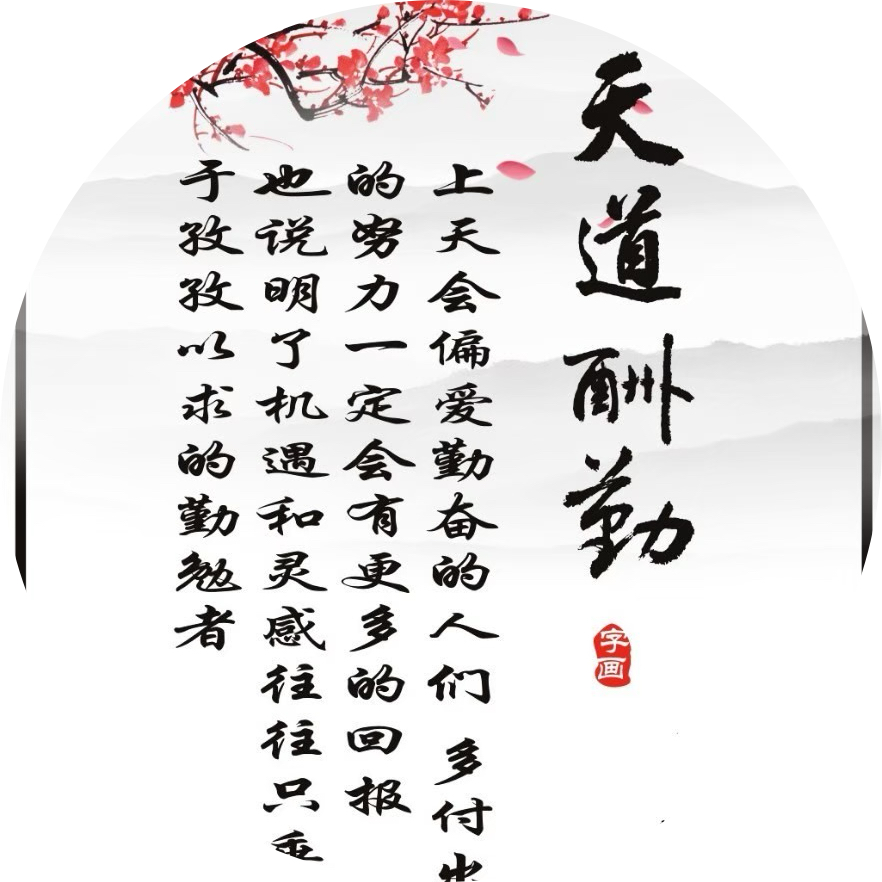 天道酬勤
字画
上天会偏爱勤奋的人们 多付出
的努力一定会有更多的回报
也说明了机遇和灵感往往只垂
于孜孜以求的勤勉者